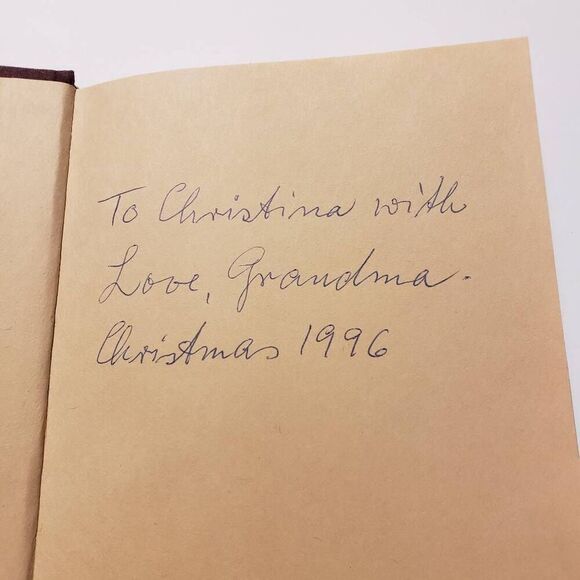 To Christina with
Love, Grandma.
Christmas 1996